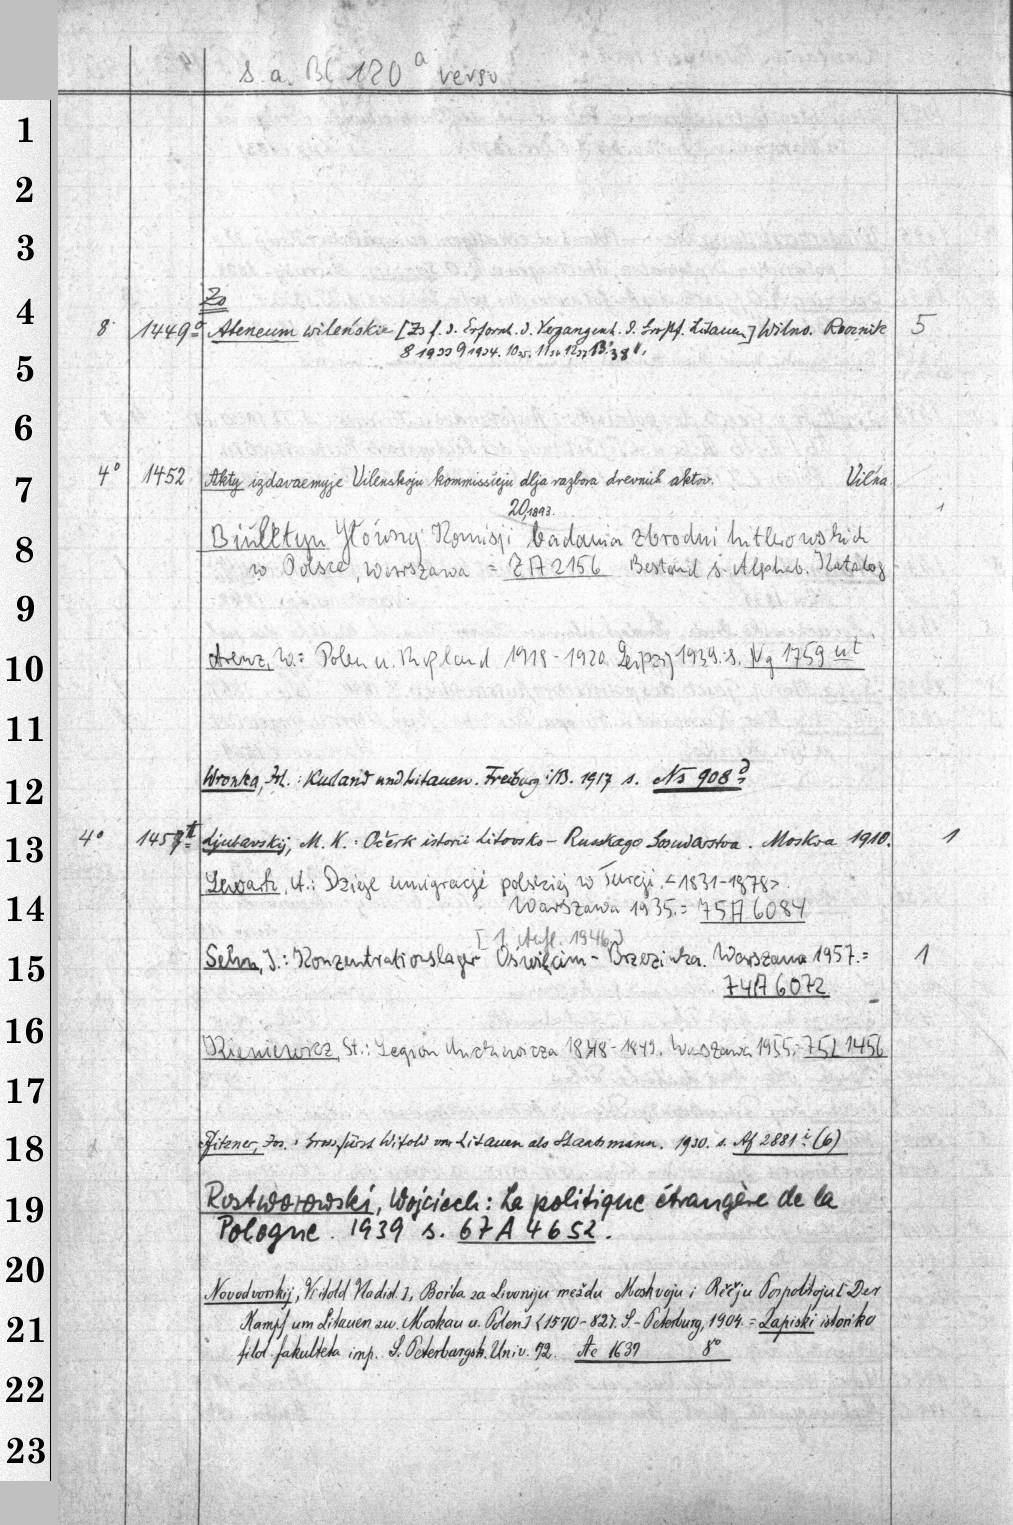 s. a. Bl 120 a verso
1
2
3
Zs
4
8° 1449 a Ateneum wileńskie [Zs f. d. Erforsch. d. Vergangenh. d. Großf. Litauen] Wilno. Rocznik 5
8 1933 9 1934. 10 35. 11 36 12 37 13 38 II.
5
6
7
4° 1452 Akty izdavaemyje Vilenskoju kommissieju dlja razbora drevnih aktov. Vilna
20, 1893. 1
8
Biuletyn Główny Komisji badania zbrodni hitlerowskich
w Polsce, Warszawa = ZA 2156 Bestand s. Alphab. Katalog
9
10
Arenz, W.: Polen u. Rußland 1918-1920. Leipzig 1939. s. Ng 1759 nt
11
12
Wronka, Joh.: Kurland und Litauen. Freiburg i/B. 1917 s. Ns 908 d
13
4° 1457 II Ljubavskij, M. K.: Očerk istorii Litovsko-Russkago Gosudarstva. Moskva 1910. 1
Lewak, A.: Dzieje emigracji polskiej w Turcji. <1831-1878>.
14
Warszawa 1935. = 75A6084
[1. Aufl. 1946]
15
Sehn, J.: Konzentrationslager Oświęcim-Brzezinka. Warszawa 1957. = 1
74A6072
16
Kieniewicz, St.: Legion Mickiewicza 1848-1849. Warszawa 1955. = 75L1456
17
18
Pfitzner, Jos.: Grossfürst Witold von Litauen als Staatsmann. 1930. s. Af 2881 i (6)
19
Rostworowski, Wojciech: La politique étrangère de la
Pologne. 1939 s. 67A4652.
20
Novodvorskij, Vitold Vladisl.], Borba za Livoniju meždu Moskvoju i Rěčju Pospolitoju [Der
21
Kampf um Litauen zw. Moskau u. Polen] <1570-82>. S-Peterburg, 1904. = Zapiski istoriko
filol. fakulteta imp. S. Peterburgsk. Univ. 72. Ac 1637 8°
22
23